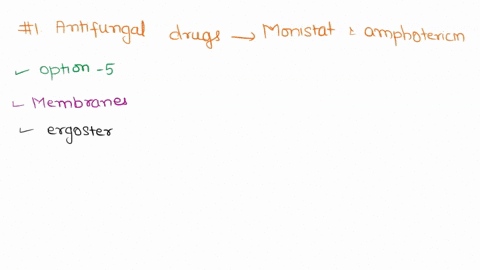 #1 Antifungal drugs → Monistat & amphotericin
✓ option -5
✓ Membranes
✓ ergoster